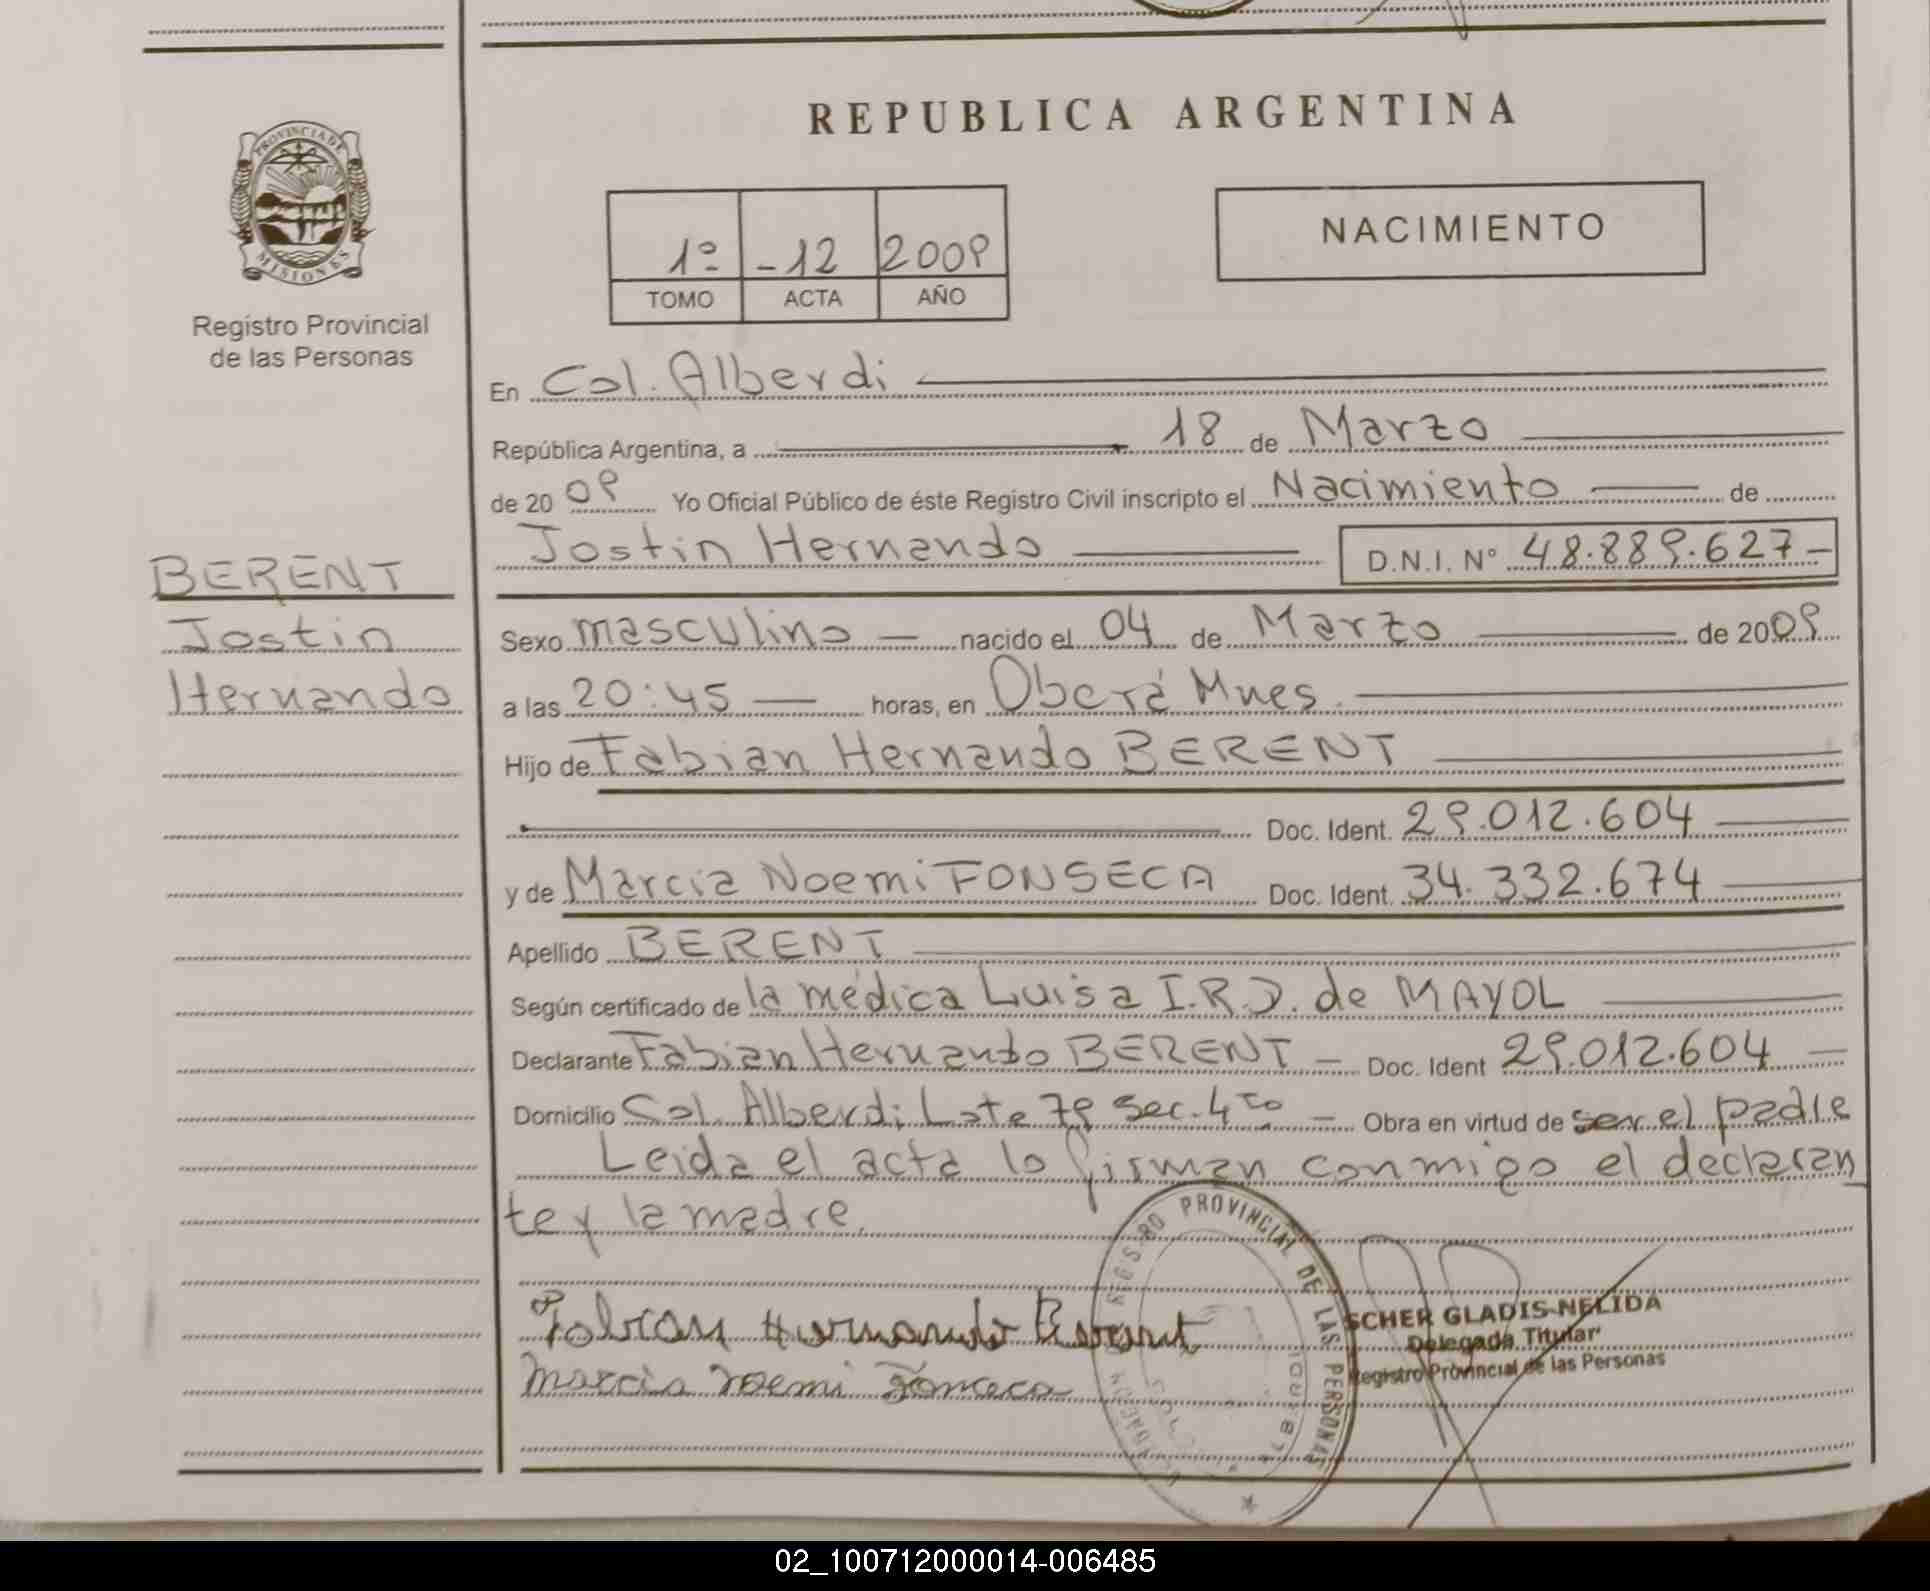 PROVINCIA DE
MISIONES
Registro Provincial
de las Personas
BERENT
Jostin
Hernando
REPUBLICA ARGENTINA
1º - 12 2009
TOMO ACTA AÑO
NACIMIENTO
En Col. Alberdi
República Argentina, a 18 de Marzo
de 2009 Yo Oficial Público de éste Registro Civil inscripto el Nacimiento de
Jostin Hernando D.N.I. Nº 48.889.627
Sexo masculino nacido el 04 de Marzo de 2009
a las 20:45 horas, en Oberá Mnes
Hijo de Fabian Hernando BERENT
Doc. Ident. 29.012.604
y de Marcia Noemi FONSECA Doc. Ident. 34.332.674
Apellido BERENT
Según certificado de la médica Luisa I.R.D. de MAYOL
Declarante Fabian Hernando BERENT Doc. Ident 29.012.604
Domicilio Col. Alberdi Lote 79 Sec. 4to Obra en virtud de ser el padre
Leida el acta lo firman conmigo el declaran
te y la madre.
Fabian Hernando Berent
Marcia Noemi Fonseca
PROVINCIAL DE LAS PERSONAS
SCHER GLADIS NELIDA
Delegada Titular
Registro Provincial de las Personas
02_100712000014-006485